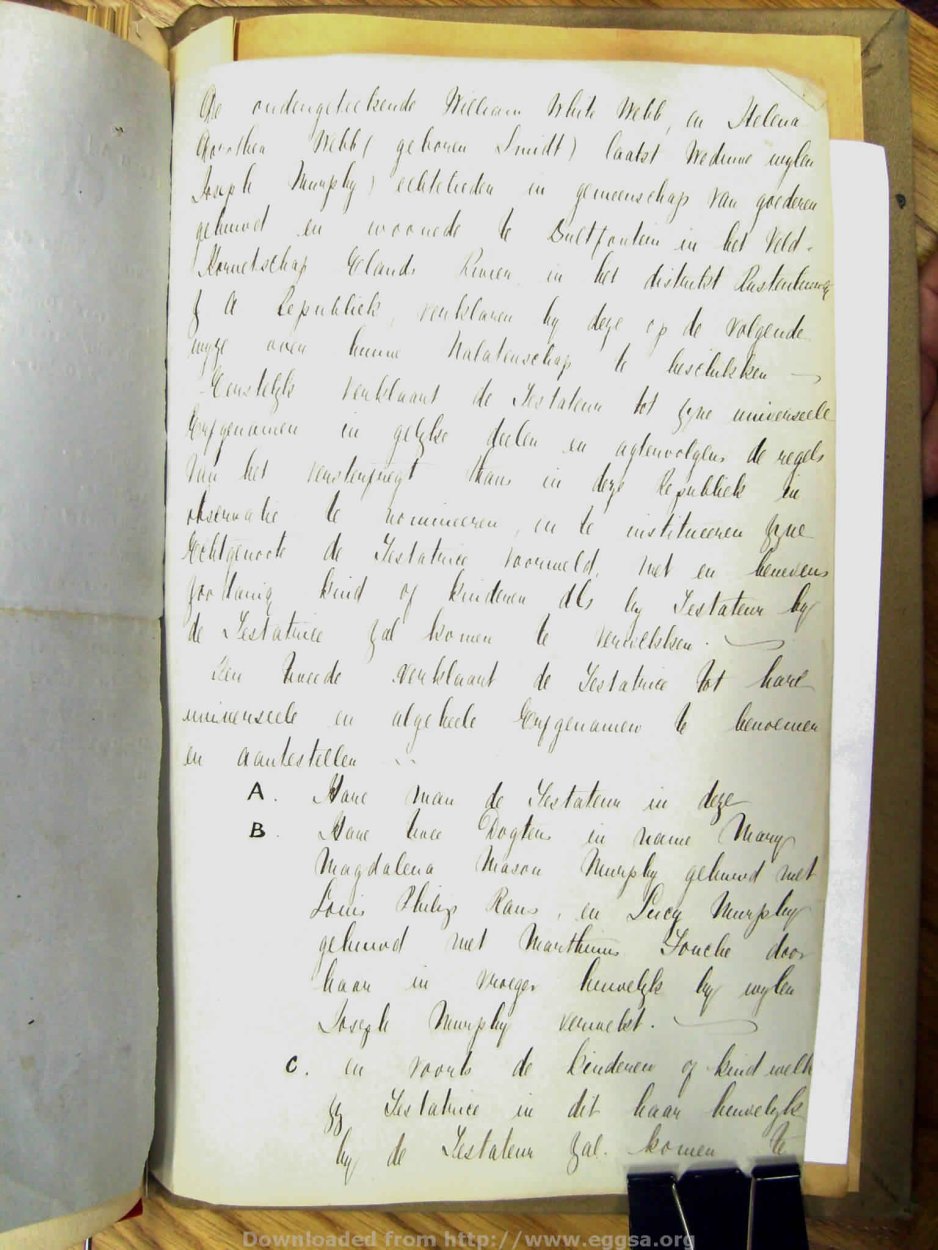 De ondengeteekende William White Webb, en Helena
Dorothea Webb ( geboren Smidt ) laatst Weduwe wylen
Joseph Murphy ) echtelieden in gemeenschap van goederen
gehuwd en woonede te Bultfontein in het Veld-
Kornetschap Elands Rivier in het distrikt Rustenburg
Z A Republiek, verklaren by deze op de volgende
wyze over hunne Nalatenschap te beschikken
Eerstelyk verklaart de Testateur tot zyne universeele
Erfgenamen in gelyke deelen en agtervolgens de regels
van het versterfregt thans in deze Republiek in
observatie te nomineeren, en te institueeren zyne
Echtgenoote de Testatrice voormeld, met en benevens
zoodanig kind of kinderen als hy Testateur by
de Testatrice zal komen te verwekken.
Ten tweede verklaart de Testatrice tot hare
universeele en algeheele Erfgenamen te benoemen
en aantestellen
A. Hare man de Testateur in deze
B. Hare twee Dogters in name Mary
Magdalena Mason Murphy gehuwd met
Louis Philip Raus, en Lucy Murphy
gehuwd met Marthinus Fouche door
haar in vroeger huwelyk by wylen
Joseph Murphy verwekt.
C. en voorts de kinderen of kind welk
zy Testatrice in dit haar huwelyk
by de Testateur zal komen te
Downloaded from http://www.eggsa.org